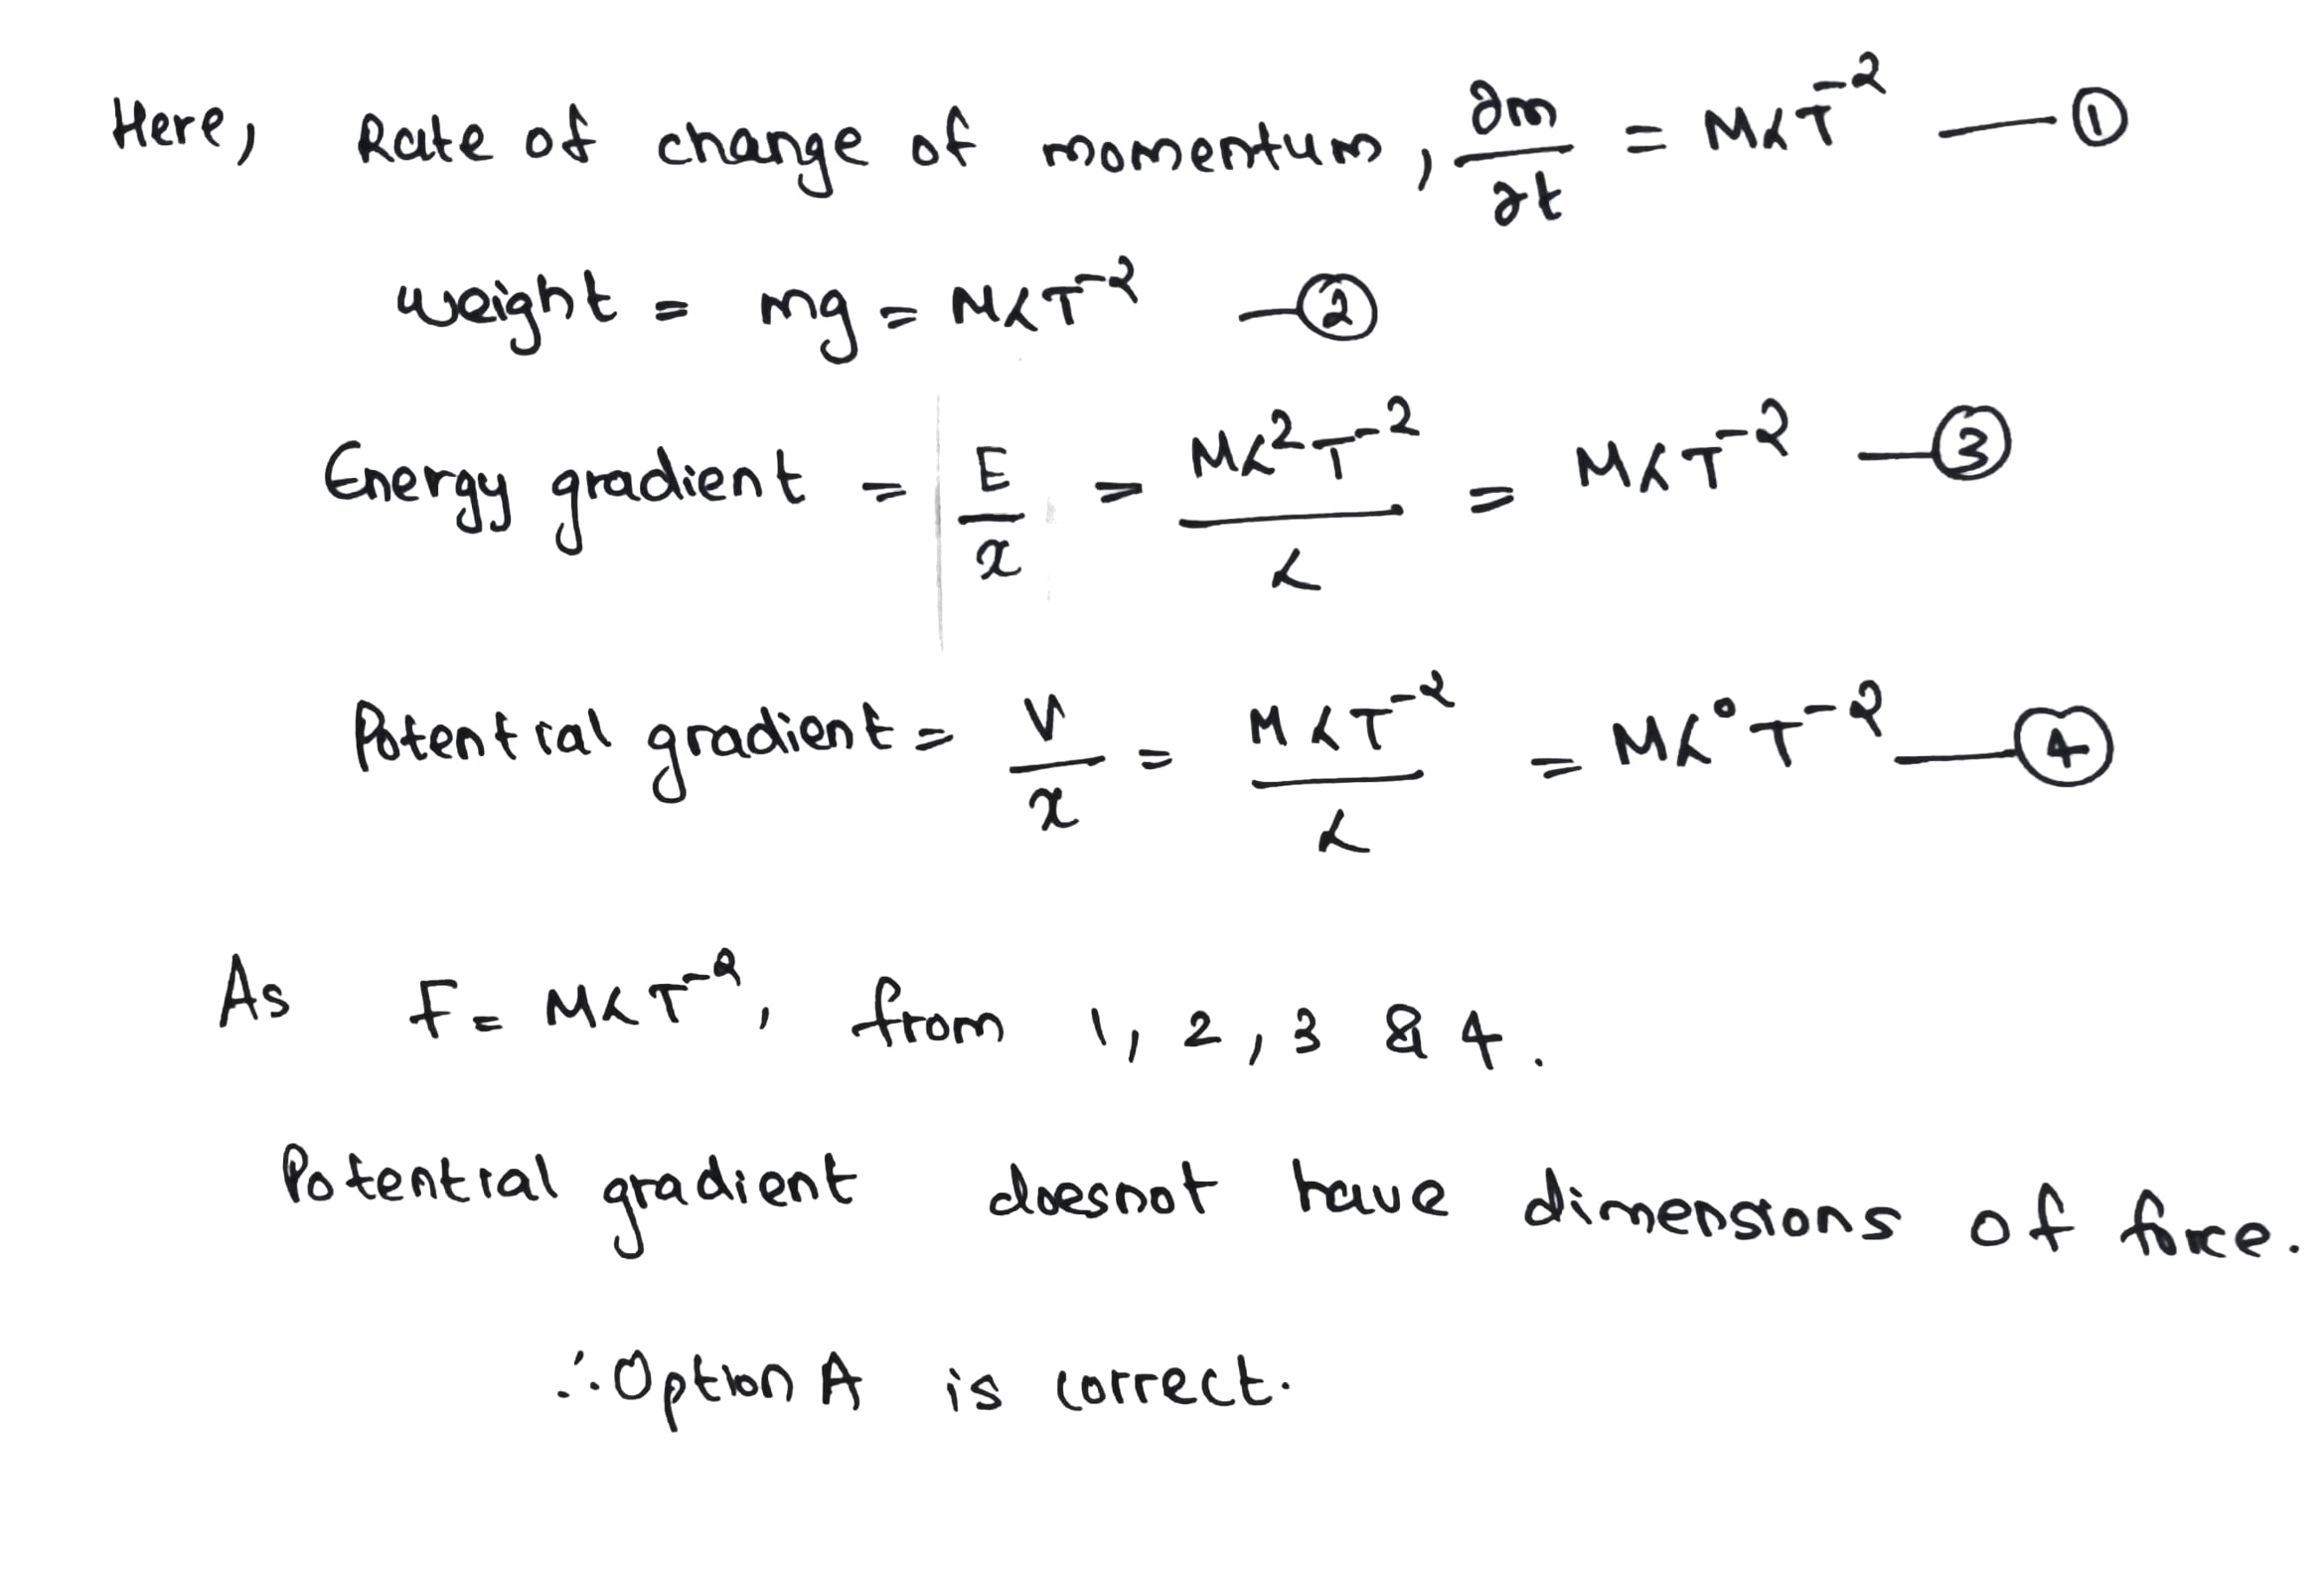 Here, Rate of change of momentum, ∂m/∂t = MLT⁻² —①
weight = mg = MLT⁻² —②
Energy gradient = E/x = ML²T⁻²/L = MLT⁻² —③
Potential gradient = V/x = MLT⁻²/L = ML⁰T⁻² —④
As F = MLT⁻², from 1, 2, 3 & 4.
Potential gradient doesnot have dimensions of force.
∴ Option A is correct.